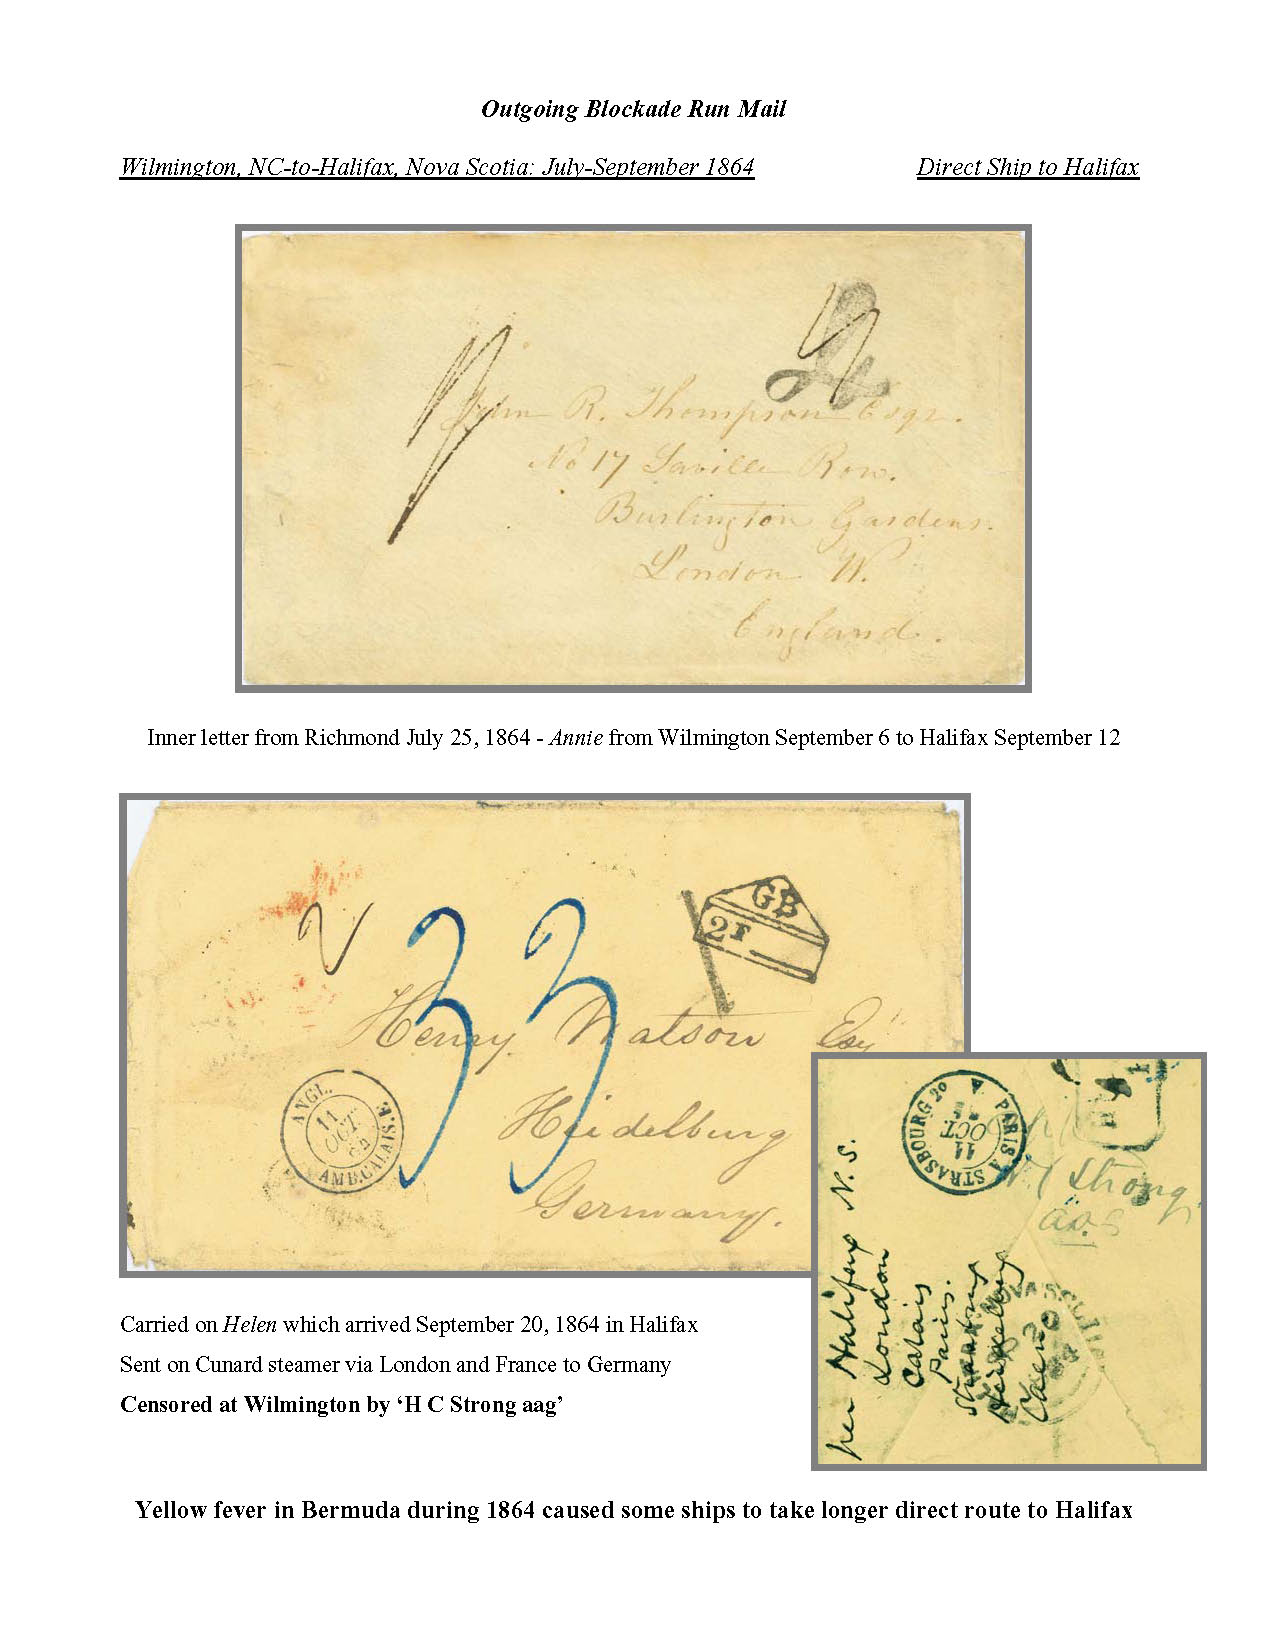 Outgoing Blockade Run Mail
Wilmington, NC-to-Halifax, Nova Scotia: July-September 1864 Direct Ship to Halifax
John R. Thompson Esqr.
No 17 Saville Row.
Burlington Gardens.
London W.
England.
Inner letter from Richmond July 25, 1864 - Annie from Wilmington September 6 to Halifax September 12
GB
2F
2 33
Henry Watson Esq
Heidelburg
Germany.
ANGL.
11
OCT
AMB. CALAIS E.
PARIS A STRASBOURG 2º
11
OCT
Strong
per Halifax N.S.
London
Calais
Paris.
NOVA SCOTIA
Carried on Helen which arrived September 20, 1864 in Halifax
Sent on Cunard steamer via London and France to Germany
Censored at Wilmington by ‘H C Strong aag’
Yellow fever in Bermuda during 1864 caused some ships to take longer direct route to Halifax